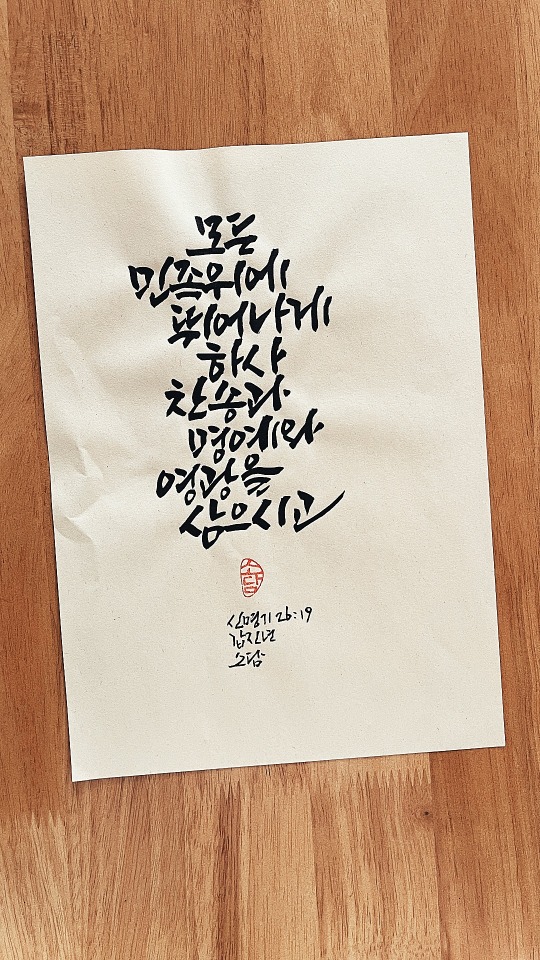 모든
민족위에
뛰어나게
하사
찬송과
명예와
영광을
삼으시고
소담
신명기 26:19
갑진년
소담